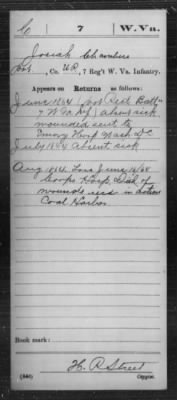 C 7 W. Va.
Josiah Chambers
Pvt., Co. G, 7 Reg't W. Va. Infantry.
Appears on Returns as follows:
June 1864 absent sick
wounded sent to
Emory Hosp Wash DC
July 1864 Absent sick
Aug 1864 Loss June 16/64
Corps Hosp. Died of
wounds recd in action
Coal Harbor
Book mark:
H. R. Street
(546) Copyist.